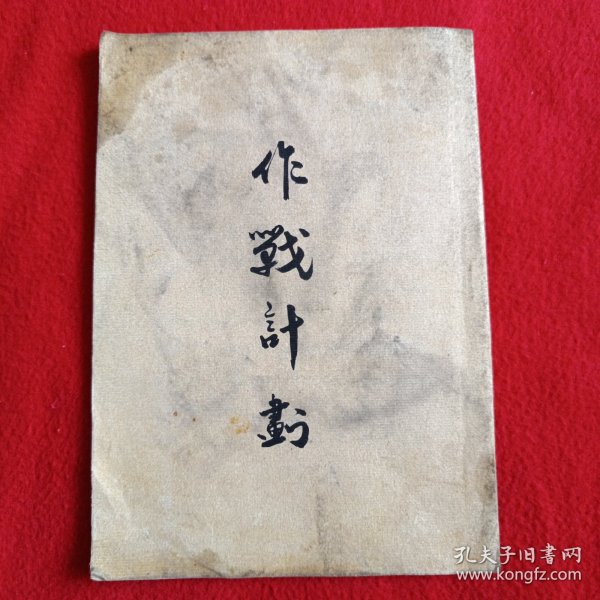 作戰計劃
孔夫子旧書网
www.kongfz.com